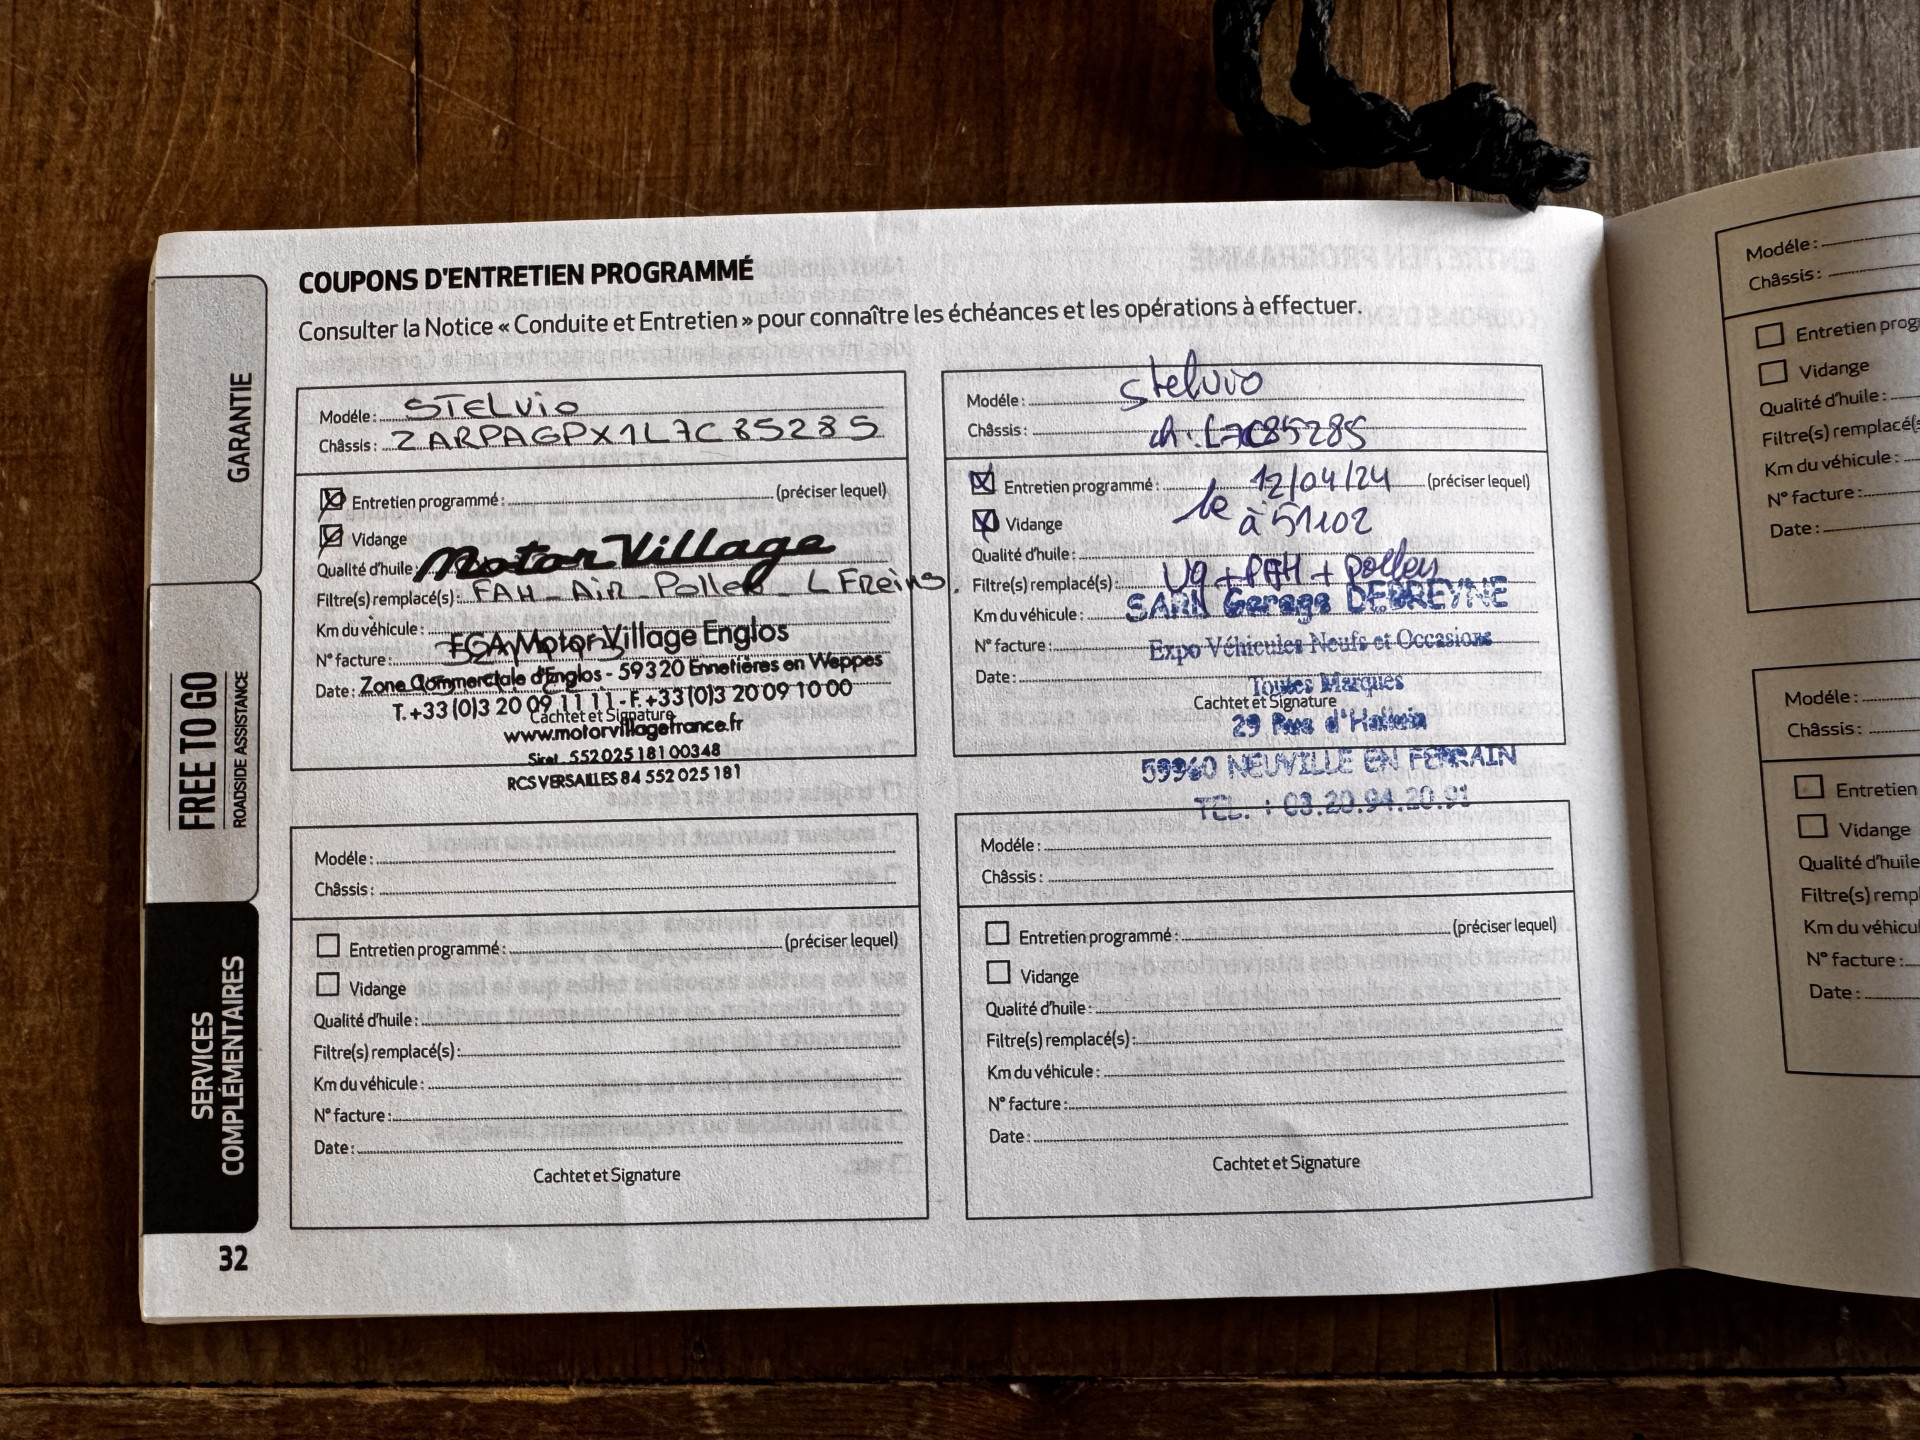 COUPONS D'ENTRETIEN PROGRAMMÉ
Consulter la Notice « Conduite et Entretien » pour connaître les échéances et les opérations à effectuer.
GARANTIE
FREE TO GO
ROADSIDE ASSISTANCE
SERVICES
COMPLÉMENTAIRES
32
Modéle : STELViO
Châssis : ZARPAGPX1L7C85285
Entretien programmé : (préciser lequel)
Vidange
Motor Village
Qualité d'huile
Filtre(s) remplacé(s) : FAH - Air - Pollen - L Freins.
Km du véhicule :
FGA Motor Village Englos
N° facture :
Zone Commerciale d'Englos - 59320 Ennetières en Weppes
Date :
T. +33 (0)3 20 09 11 11 - F. +33 (0)3 20 09 10 00
Cachtet et Signature
www.motorvillagefrance.fr
Siret 552 025 181 00348
RCS VERSAILLES 84 552 025 181
Modéle : Stelvio
Châssis : L7C85285
Entretien programmé : 12/04/24 (préciser lequel)
Vidange le à 51102
Qualité d'huile :
Filtre(s) remplacé(s) : + FAH + pollen
Km du véhicule : SARL Garage DEBREYNE
N° facture : Expo Véhicules Neufs et Occasions
Date : Toutes Marques
Cachtet et Signature
29 d'Halluin
59960 NEUVILLE EN FERRAIN
TEL. : 03.20.94.20.91
Modéle :
Châssis :
Entretien programmé : (préciser lequel)
Vidange
Qualité d'huile :
Filtre(s) remplacé(s) :
Km du véhicule :
N° facture :
Date :
Cachtet et Signature
Modéle :
Châssis :
Entretien programmé : (préciser lequel)
Vidange
Qualité d'huile :
Filtre(s) remplacé(s) :
Km du véhicule :
N° facture :
Date :
Cachtet et Signature
Modéle :
Châssis :
Entretien prog
Vidange
Qualité d'huile :
Filtre(s) remplacé(s
Km du véhicule :
N° facture :
Date :
Modéle :
Châssis :
Entretien
Vidange
Qualité d'huile
Filtre(s) rempl
Km du véhicul
N° facture :
Date :